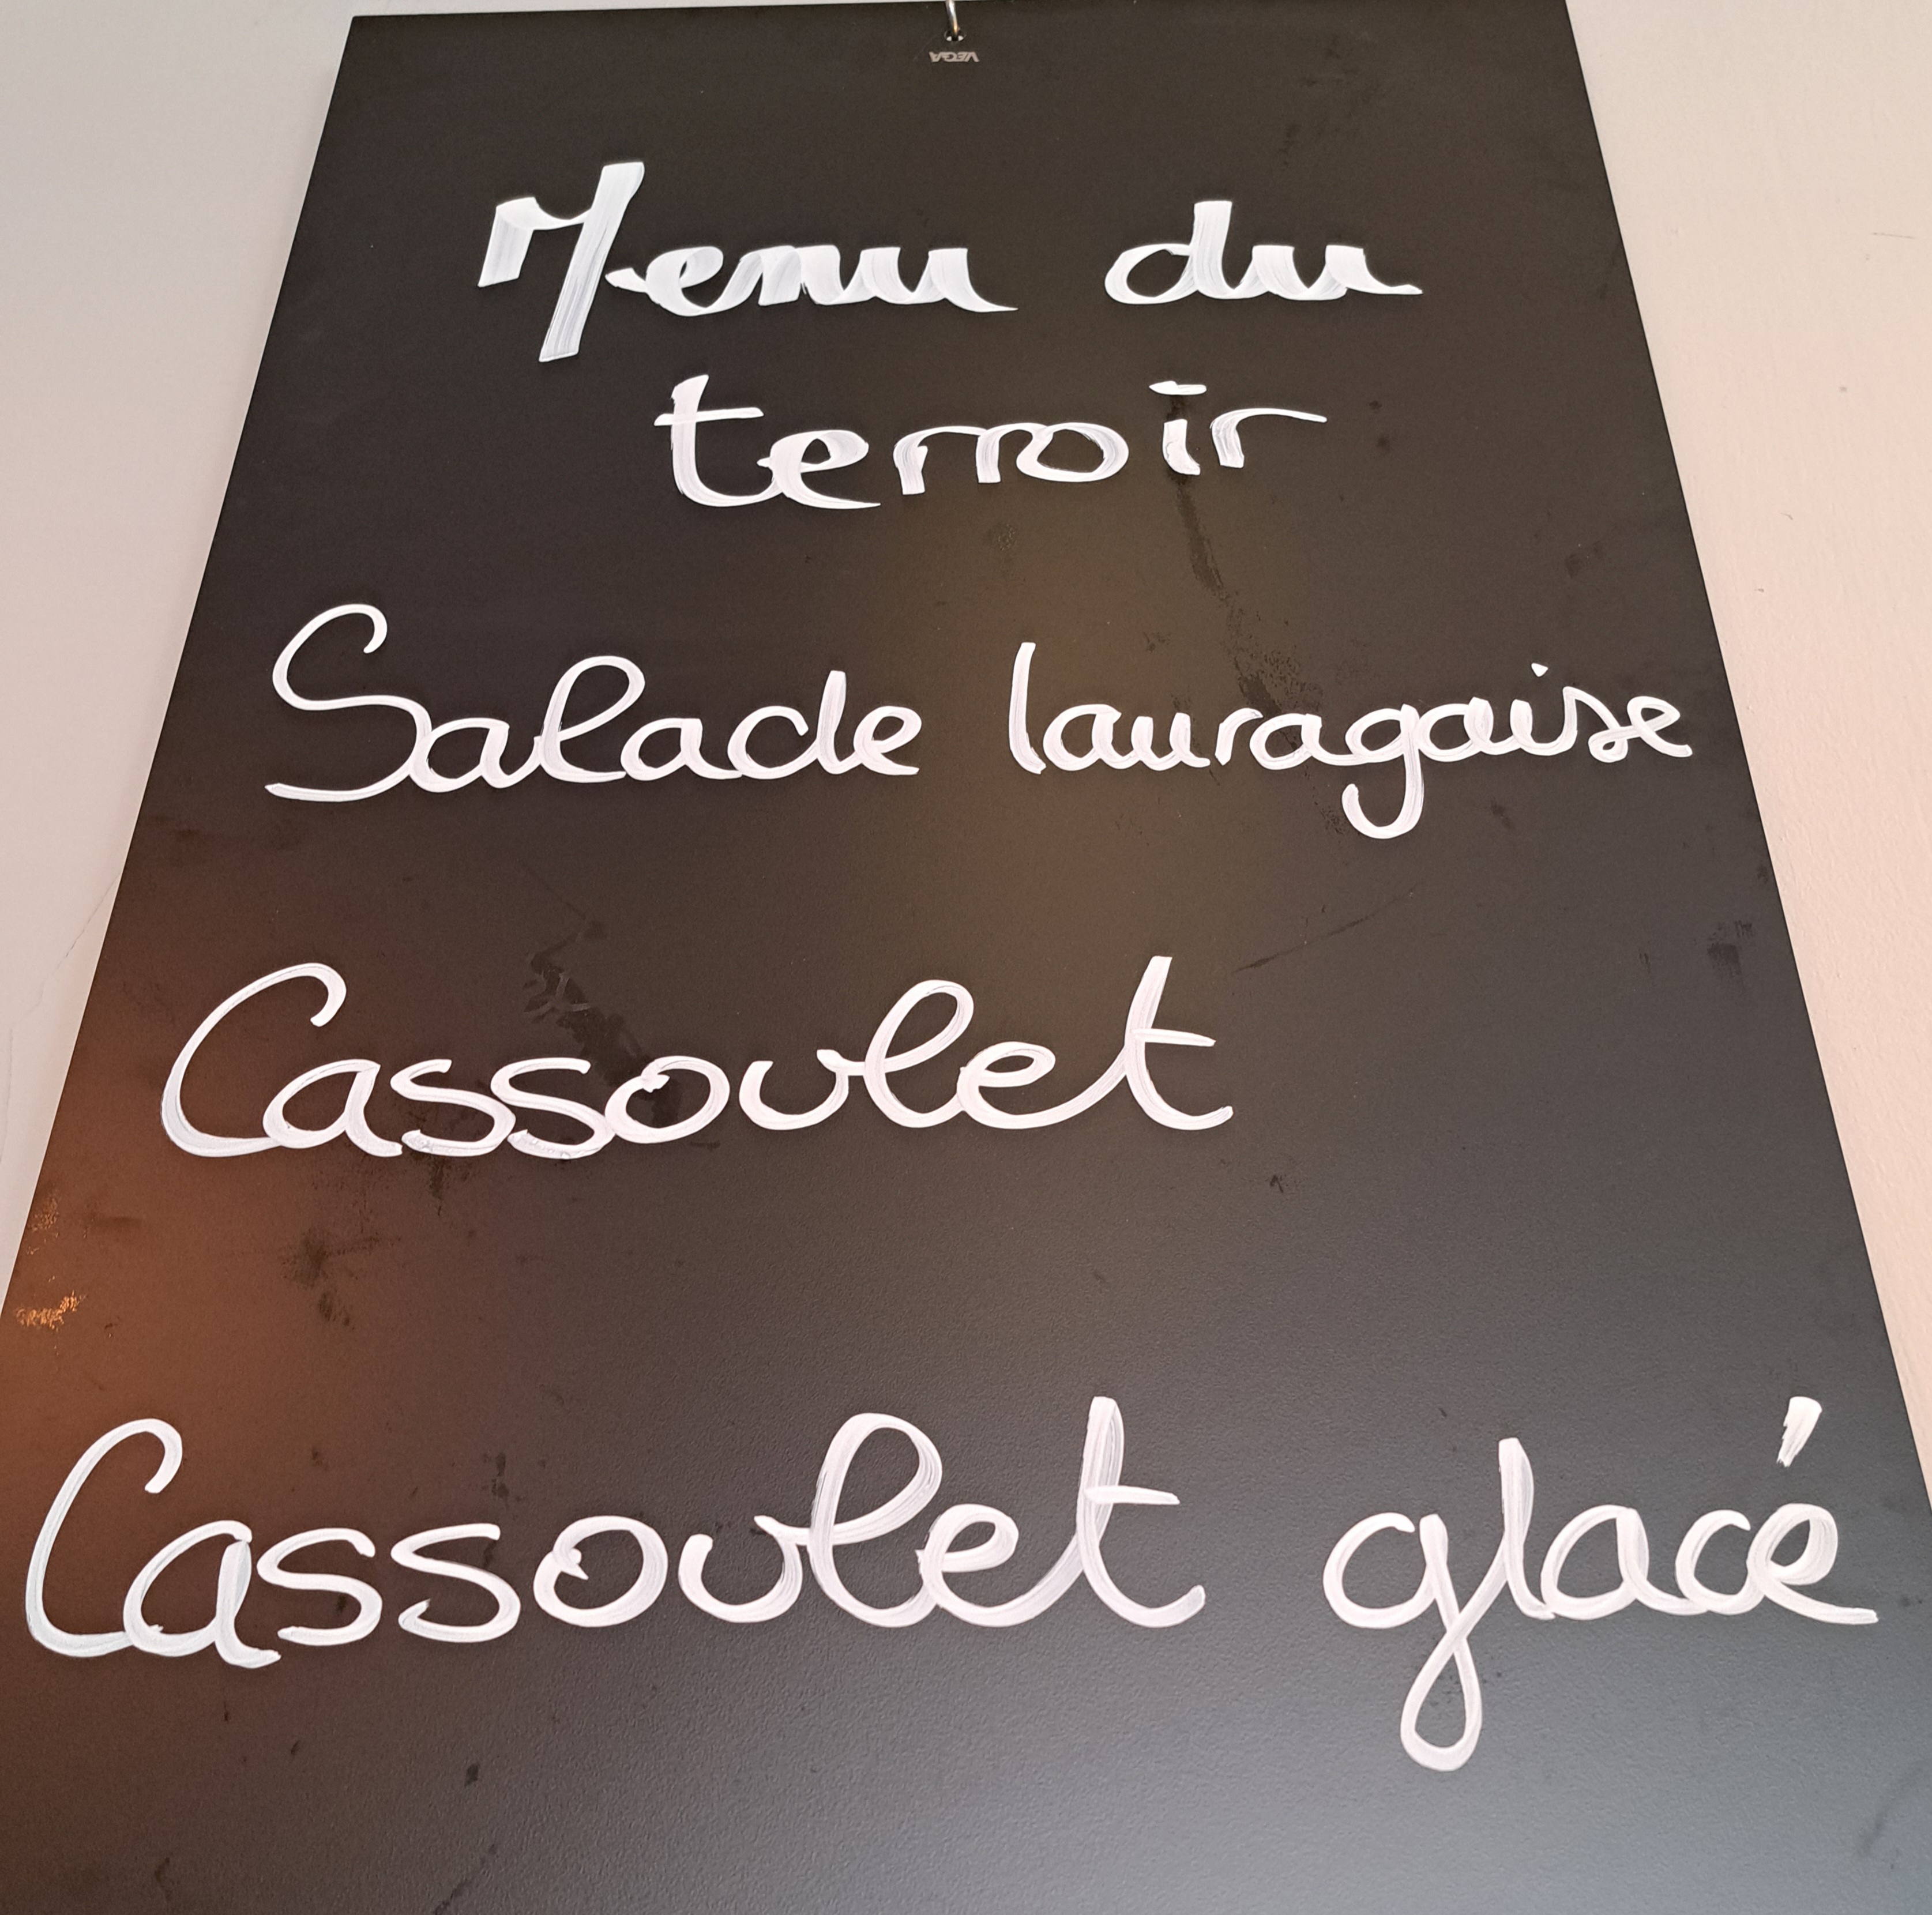 VEGA
Menu du
terroir
Salade lauragaise
Cassoulet
Cassoulet glacé